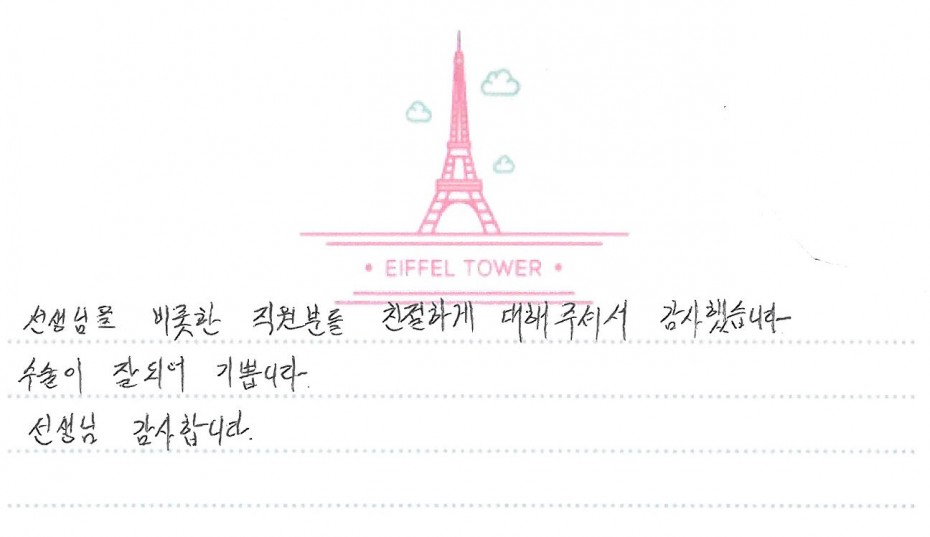 EIFFEL TOWER
선생님을 비롯한 직원분들 친절하게 대해 주셔서 감사했습니다
수술이 잘되어 기쁩니다.
선생님 감사합니다.